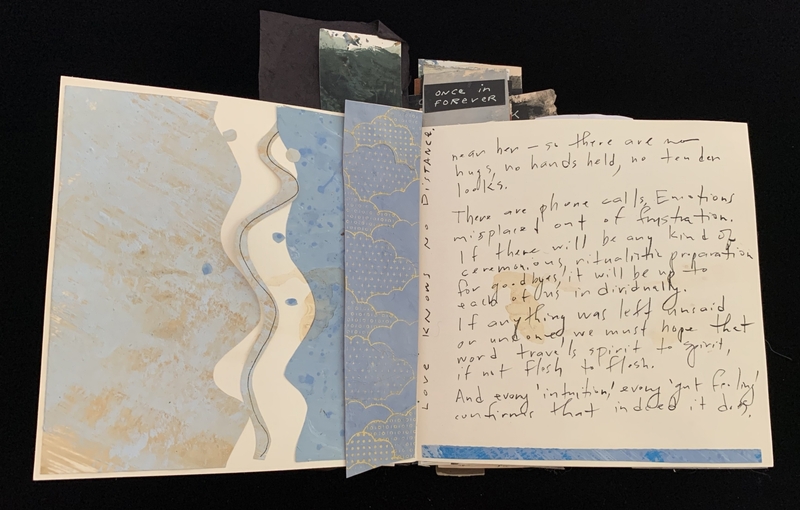 ONCE in
FOREVER
LOVE KNOWS NO DISTANCE.
near her – so there are no
hugs, no hands held, no tender
looks.
There are phone calls, Emotions
misplaced out of frustration.
If there will be any kind of
ceremonious, ritualistic preparation
for goodbyes, it will be up to
each of us individually.
If anything was left unsaid
or undone we must hope that
word travels spirit to spirit,
if not flesh to flesh.
And every 'intuition,' every 'gut feeling'
confirms that indeed it does.